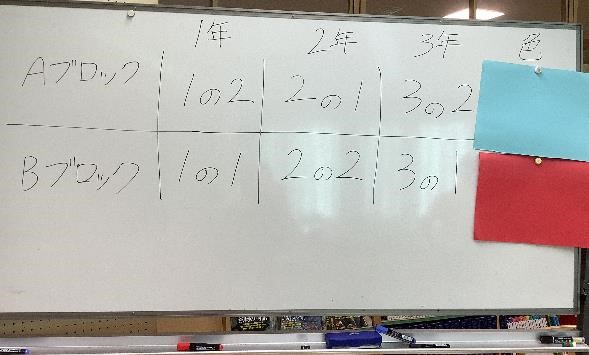 1年 2年 3年 色
Aブロック 1の2 2の1 3の2
Bブロック 1の1 2の2 3の1